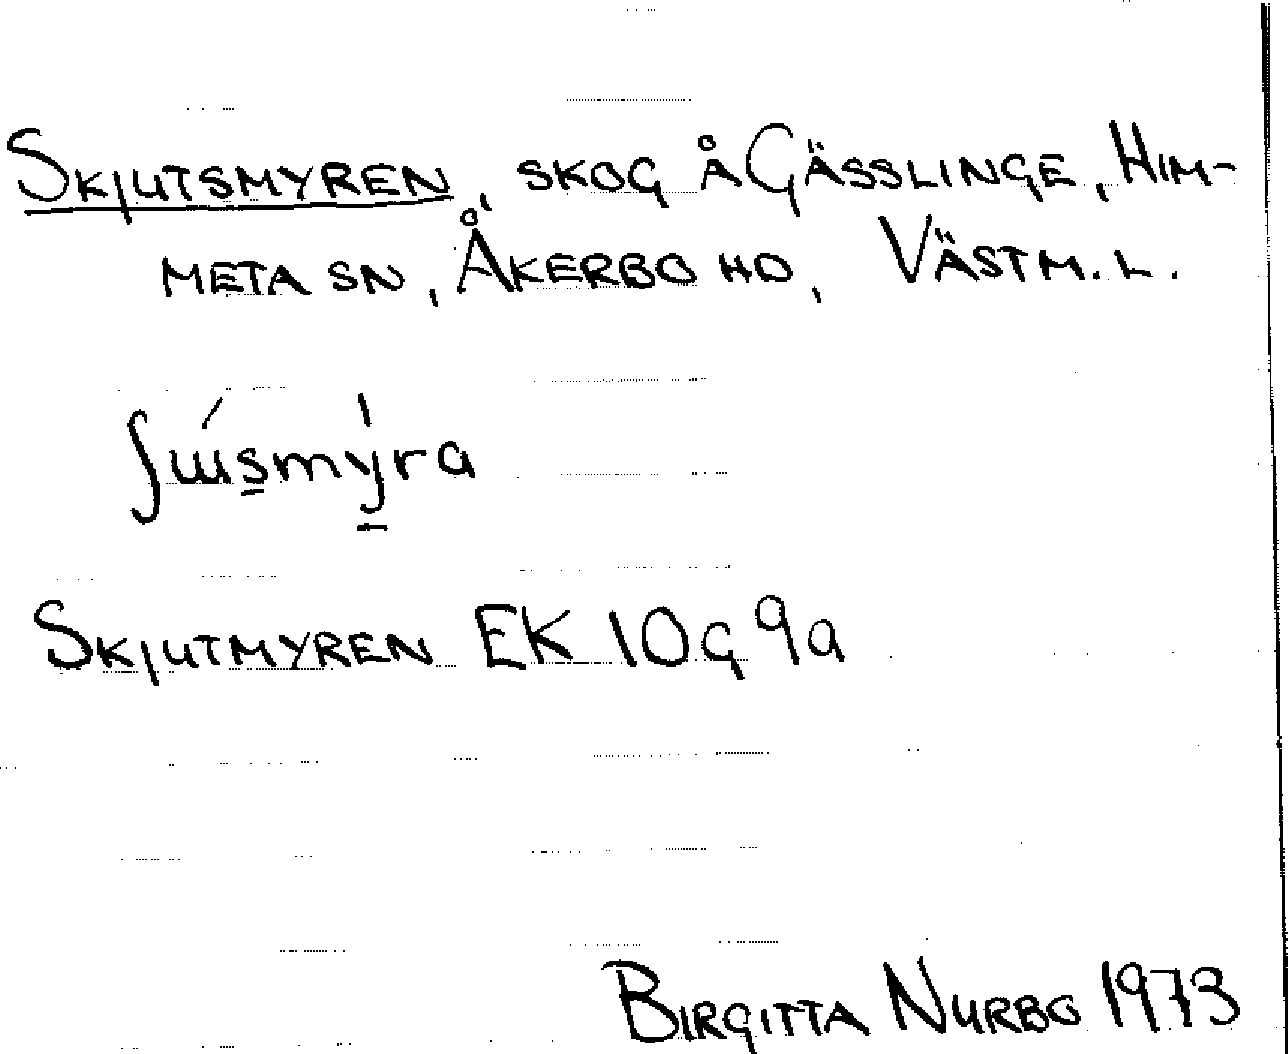 SKJUTSMYREN, SKOG Å GÄSSLINGE, HIM-
META SN, ÅKERBO HD, VÄSTM. L.
ʃɯ́s̠mý̠ra
SKJUTMYREN EK 10G 9a
BIRGITTA NURBO 1973